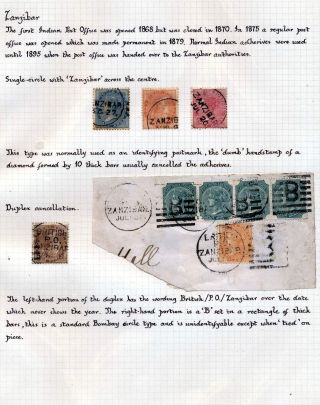 Zanzibar
The first Indian Post Office was opened 1868 but was closed in 1870. In 1875 a regular post
office was opened which was made permanent in 1879. Normal Indian adhesives were used
until 1895 when the post office was handed over to the Zanzibar authorities.
Single-circle with 'Zanzibar' across the centre.
ZANZIBAR
ZANZIBAR
ZANZIBAR
This type was normally used as an identifying postmark, the 'dumb' handstamp of a
diamond formed by 10 thick bars usually cancelled the adhesives.
Duplex cancellation.
ZANZIBAR
JUL
B
B
ZANZIBAR
JUL
The left-hand portion of the duplex has the wording British/P.O./Zanzibar over the date
which never shows the year. The right-hand portion is a 'B' set in a rectangle of thick
bars, this is a standard Bombay circle type and is unidentifyable except when 'tied' on
piece.